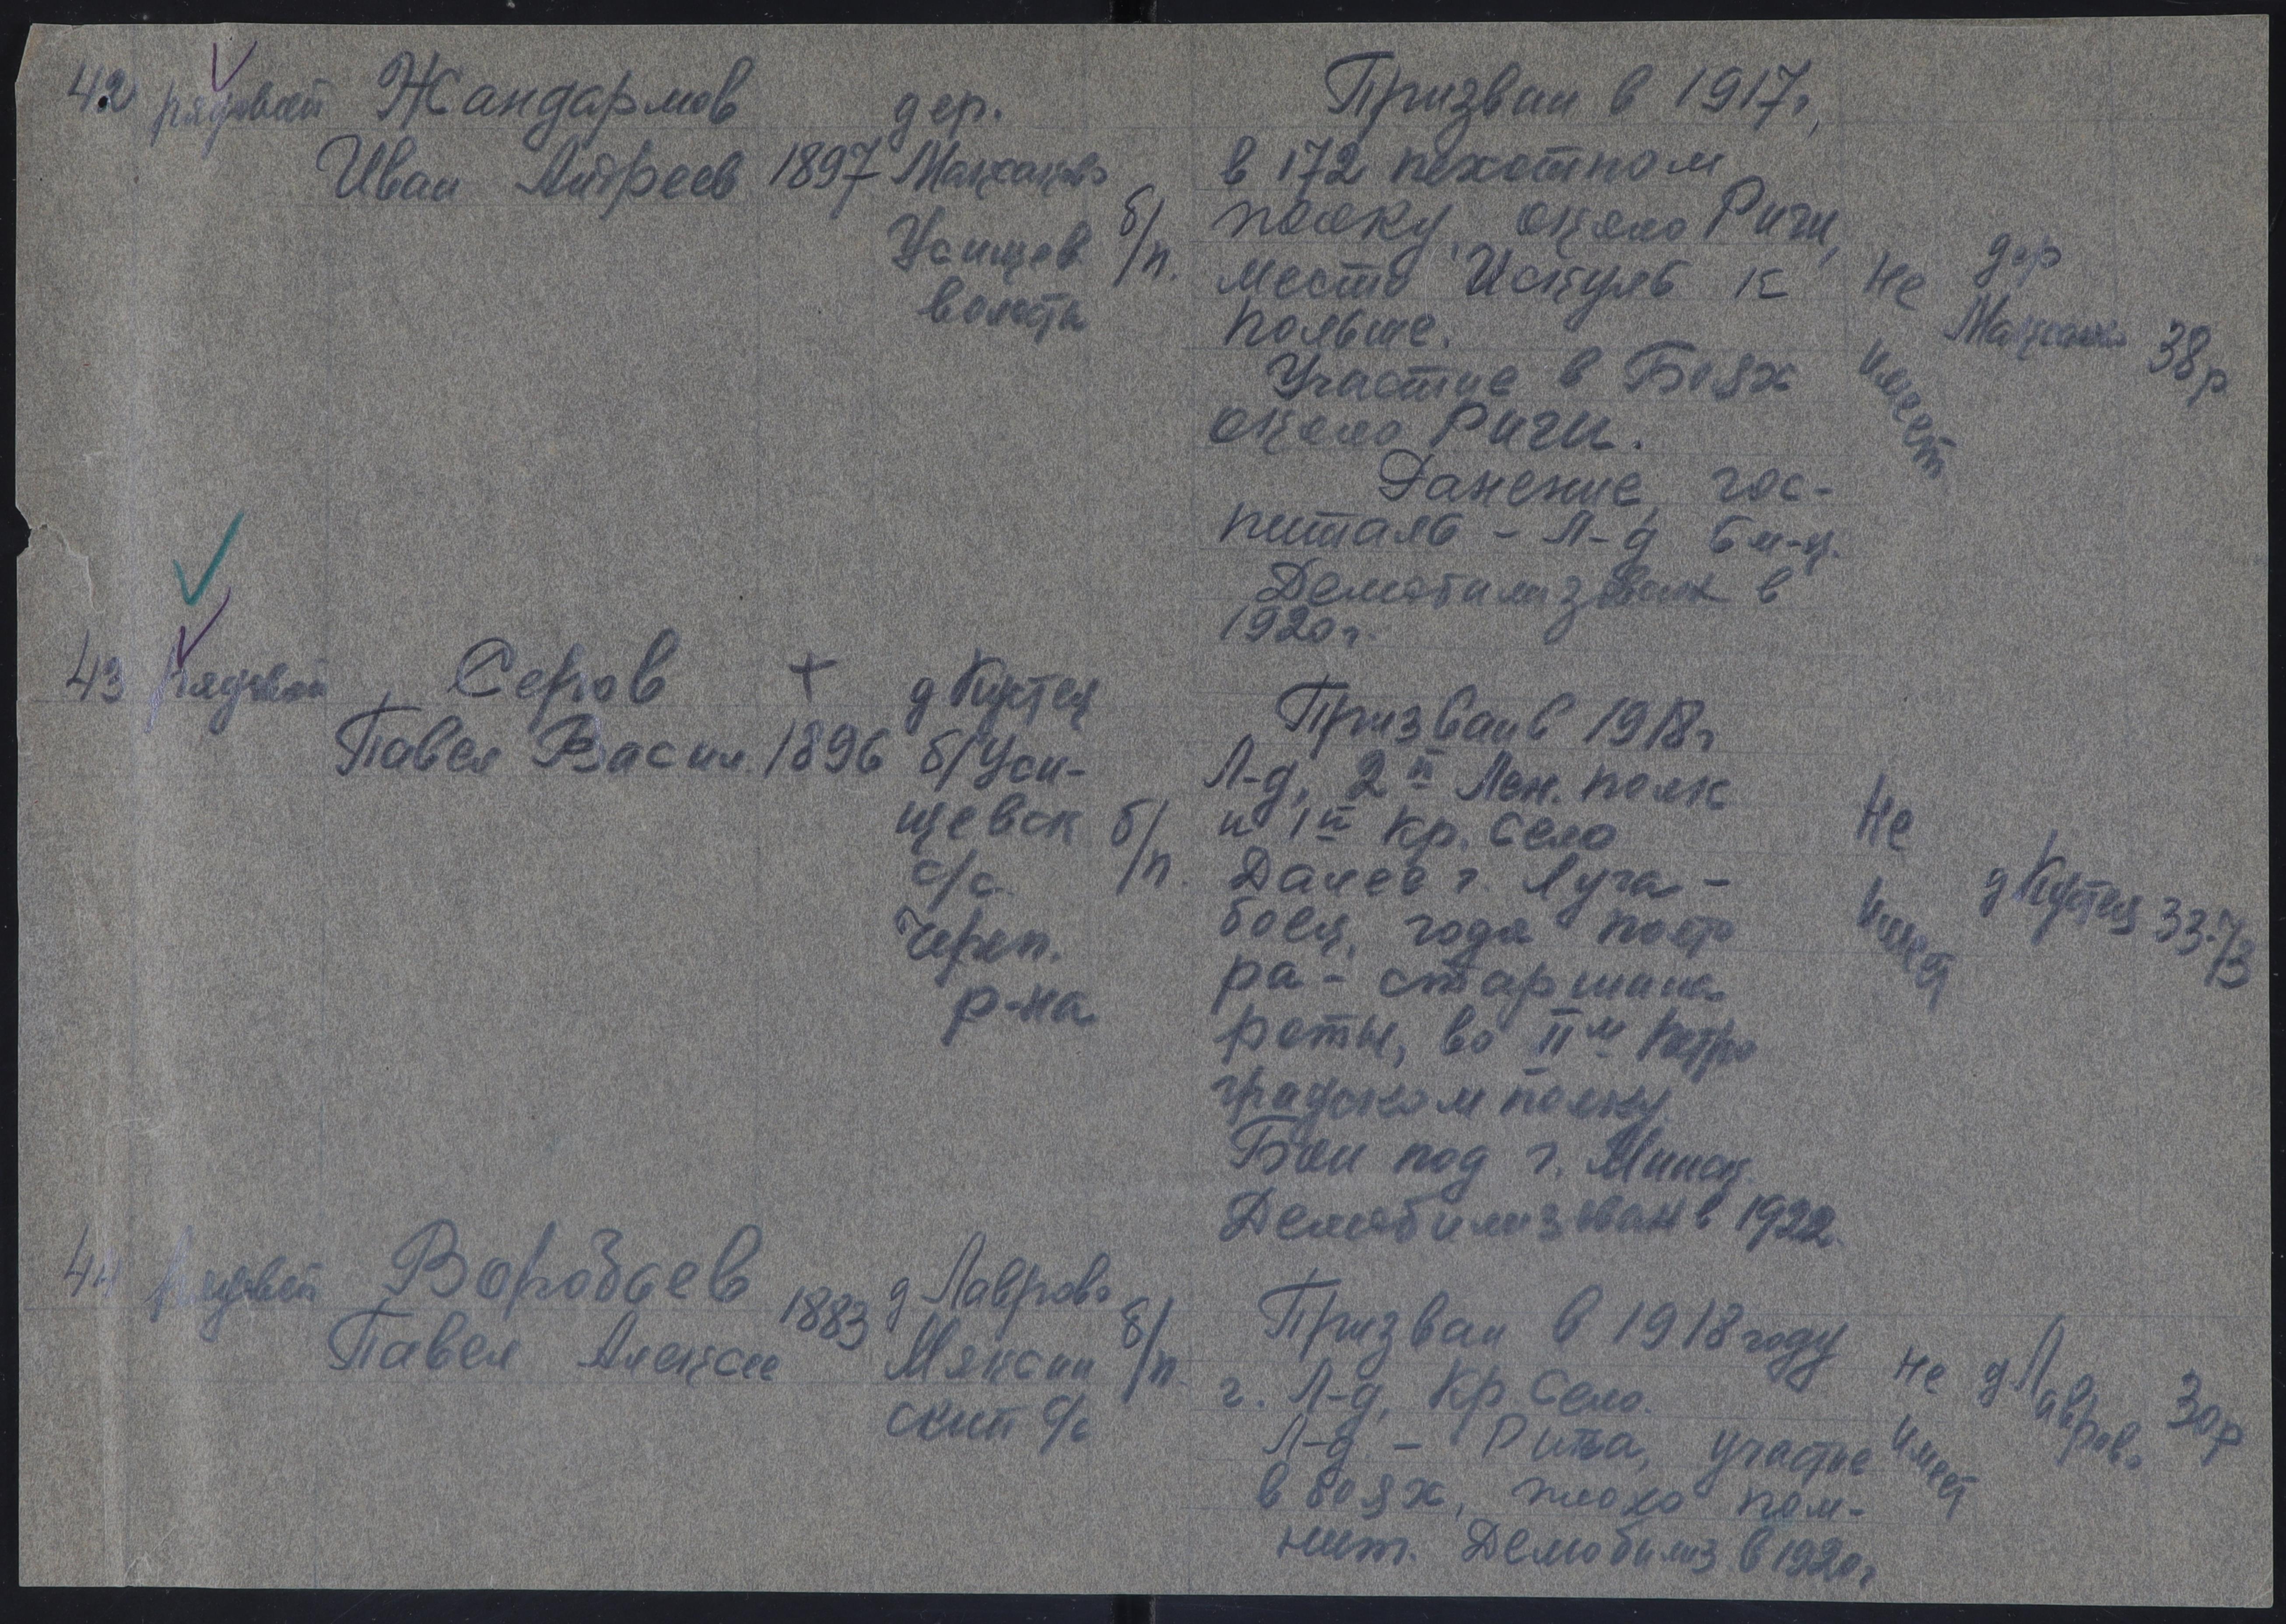 42 рядовой Жандармов
Иван Андреев 1897
дер.
Мақсаково
Усищев
волость
б/п.
Призван в 1917г,
в 172 пехотном
полку, около Риги,
место Искуль к
Польше.
Участие в Боях
около Риги.
Ранение, гос-
питаль - Л-д 6 м-ц.
Демобилизован в
1920г.
не
имеет
дер
38р
43 рядовой Серов +
Павел Васил. 1896
д Кустец
б/Уси-
щевск
с/с
Череп.
р-на
б/п.
Призван в 1918г
Л-д, 2й Лен. полк
и 1й Кр. Село
Далее г. Луга -
боец, года полто
ра - старшина
роты, во IIм Петро
градском полку
Бои под г. Минск
Демобилизован в 1922.
Не
имеет
д Кустец
33-73
44 рядовой Воробьев
Павел Алексее 1883
д Лаврово
Мяксин
ский с/с
б/п.
Призван в 1918 году
г. Л-д, Кр. Село.
Л-д - Рига, участие
в боях, плохо пом-
нит. Демобилиз в 1920г
не
имеет
д Лаврово
30р